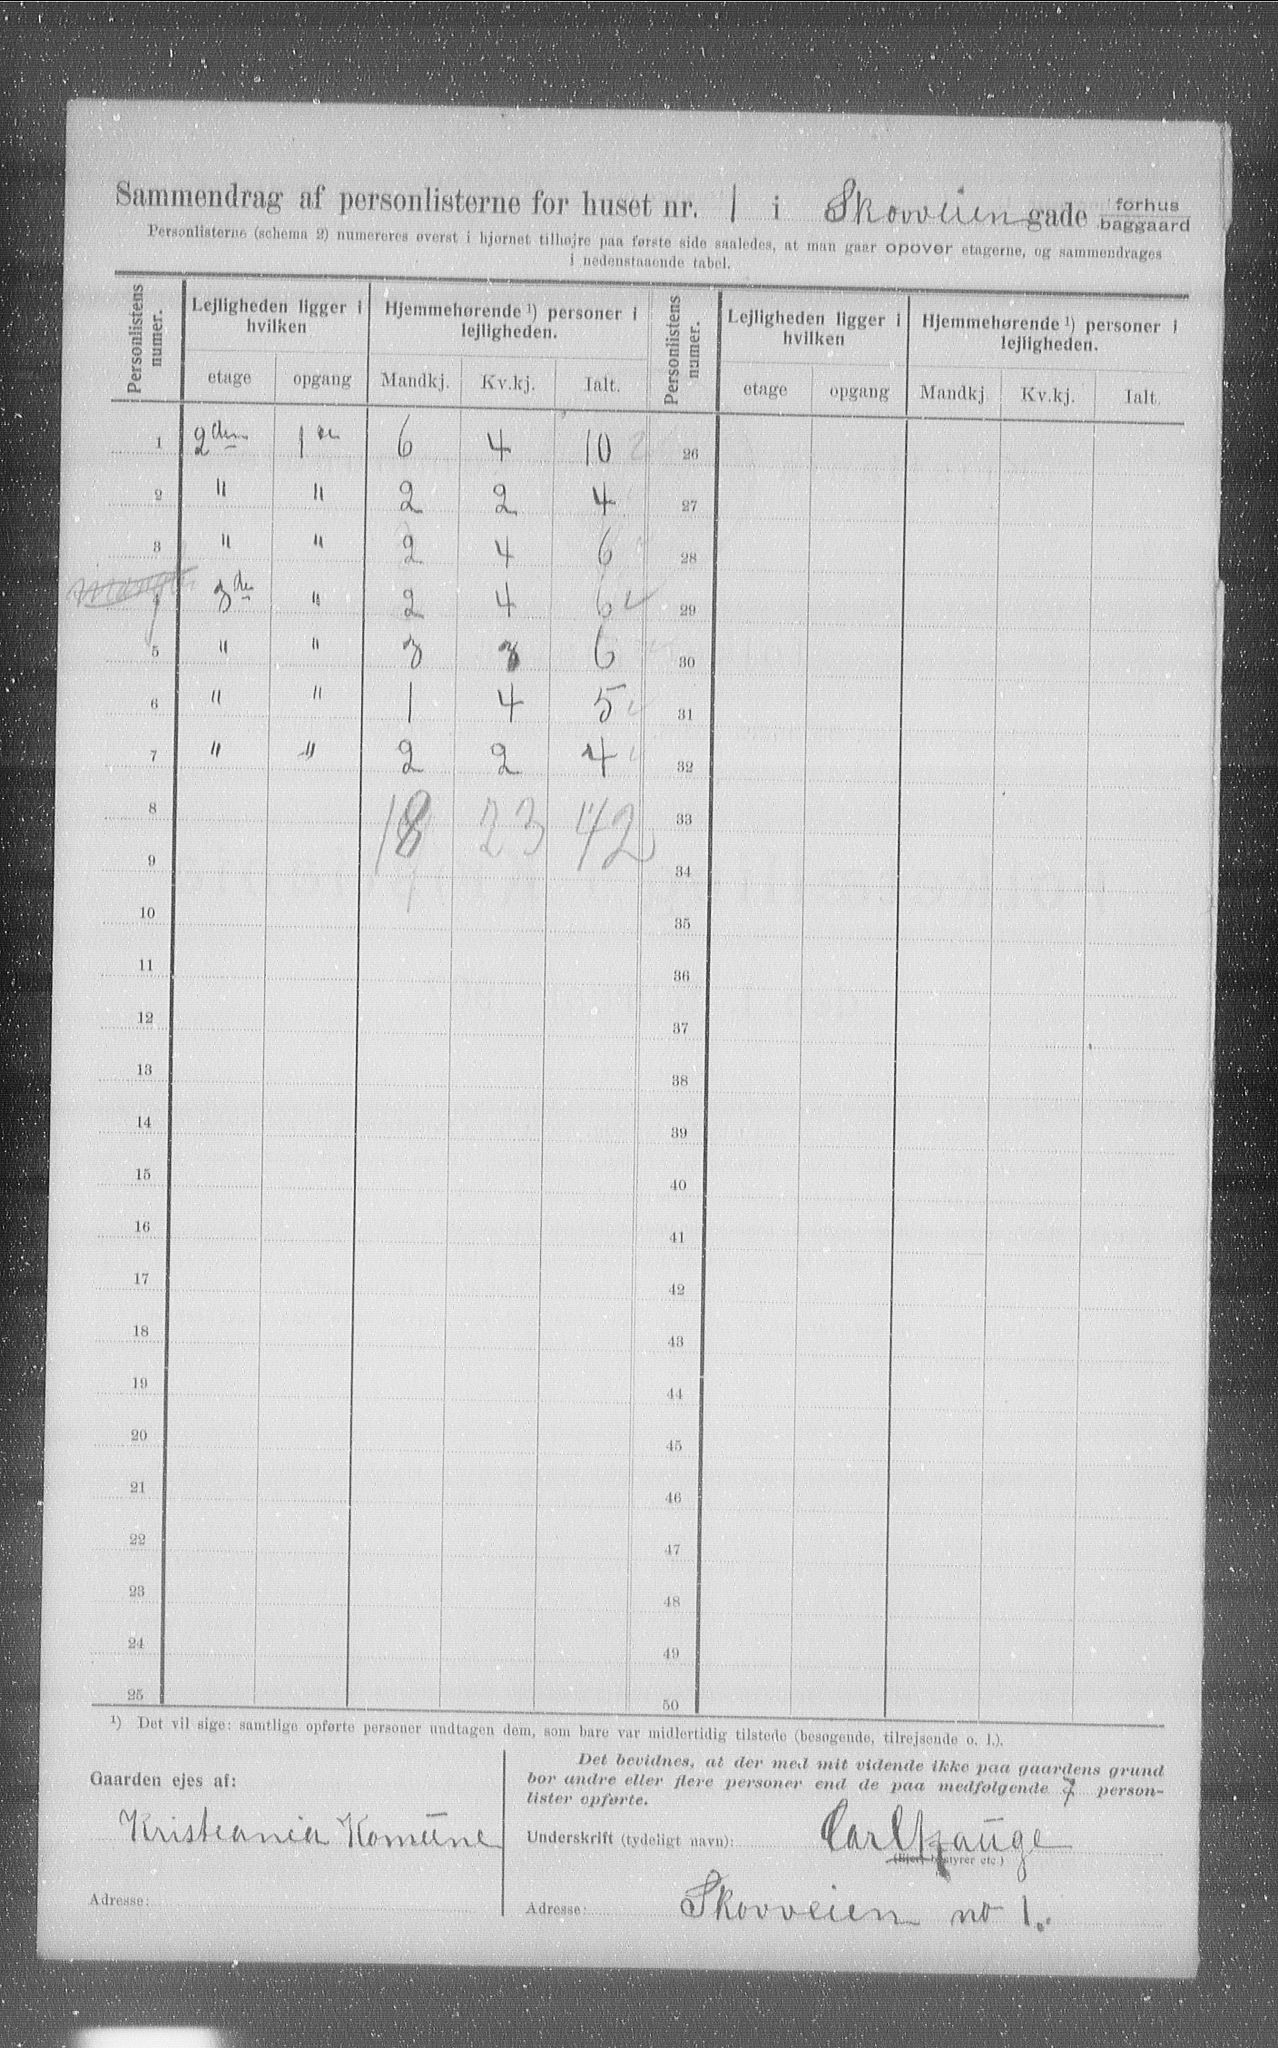 Sammendrag af personlisterne for huset nr. 1 i Skovveien gade forhus baggaard
Personlisterne (schema 2) numereres øverst i hjørnet tilhøjre paa første side saaledes, at man gaar opover etagerne, og sammendrages
i nedenstaaende tabel.
Personlistens numer. Lejligheden ligger i hvilken Hjemmehørende ¹) personer i lejligheden. Personlistens numer. Lejligheden ligger i hvilken Hjemmehørende ¹) personer i lejligheden.
etage opgang Mandkj. Kv.kj. Ialt. etage opgang Mandkj. Kv.kj. Ialt.
1 2den 1ste 6 4 10 26
2 " " 2 2 4 27
3 " " 2 4 6 28
4 3die " 2 4 6 29
5 " " 3 3 6 30
6 " " 1 4 5 31
7 " " 2 2 4 32
18 23 42
8 33
9 34
10 35
11 36
12 37
13 38
14 39
15 40
16 41
17 42
18 43
19 44
20 45
21 46
22 47
23 48
24 49
25 50
¹) Det vil sige: samtlige opførte personer undtagen dem, som bare var midlertidig tilstede (besøgende, tilrejsende o. l.).
Gaarden ejes af:
Kristiania Komune
Adresse:
Det bevidnes, at der med mit vidende ikke paa gaardens grund
bor andre eller flere personer end de paa medfølgende 7 person-
lister opførte.
Underskrift (tydeligt navn): Carl Hauge
(Ejer, bestyrer etc.)
Adresse: Skovveien no 1.